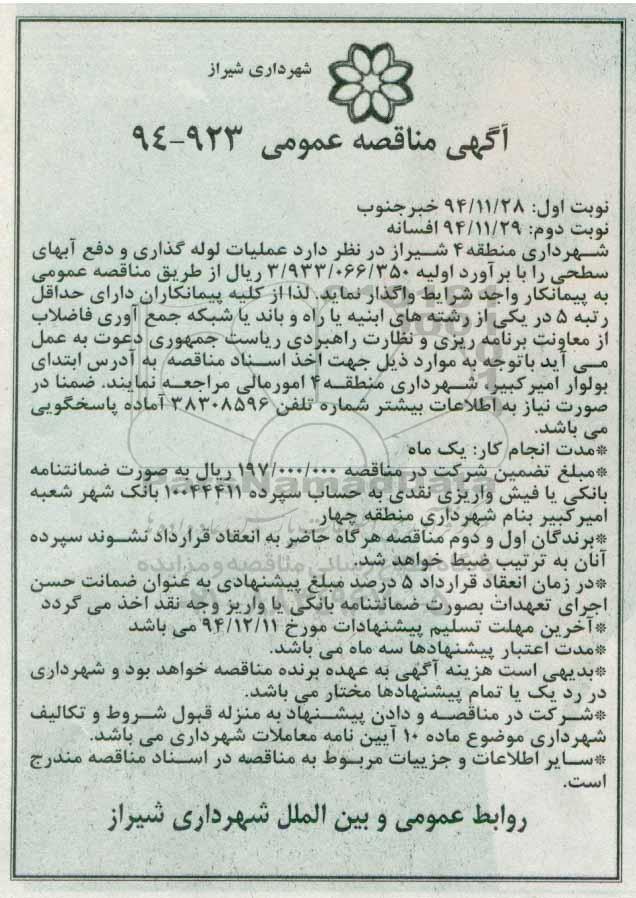 شهرداری شیراز
آگهی مناقصه عمومی ۹۲۳-۹۴
نوبت اول: ۹۴/۱۱/۲۸ خبرجنوب
نوبت دوم: ۹۴/۱۱/۲۹ افسانه
شهرداری منطقه ۴ شیراز در نظر دارد عملیات لوله گذاری و دفع آبهای
سطحی را با برآورد اولیه ۳/۹۳۳/۰۶۶/۳۵۰ ریال از طریق مناقصه عمومی
به پیمانکار واجد شرایط واگذار نماید. لذا از کلیه پیمانکاران دارای حداقل
رتبه ۵ در یکی از رشته های ابنیه یا راه و باند یا شبکه جمع آوری فاضلاب
از معاونت برنامه ریزی و نظارت راهبردی ریاست جمهوری دعوت به عمل
می آید باتوجه به موارد ذیل جهت اخذ اسناد مناقصه به آدرس ابتدای
بولوار امیرکبیر، شهرداری منطقه ۴ امورمالی مراجعه نمایند. ضمنا در
صورت نیاز به اطلاعات بیشتر شماره تلفن ۳۸۳۰۸۵۹۶ آماده پاسخگویی
می باشد.
*مدت انجام کار: یک ماه
*مبلغ تضمین شرکت در مناقصه ۱۹۷/۰۰۰/۰۰۰ ریال به صورت ضمانتنامه
بانکی یا فیش واریزی نقدی به حساب سپرده ۱۰۰۴۴۴۱۱ بانک شهر شعبه
امیرکبیر بنام شهرداری منطقه چهار.
*برندگان اول و دوم مناقصه هرگاه حاضر به انعقاد قرارداد نشوند سپرده
آنان به ترتیب ضبط خواهد شد.
*در زمان انعقاد قرارداد ۵ درصد مبلغ پیشنهادی به عنوان ضمانت حسن
اجرای تعهدات بصورت ضمانتنامه بانکی یا واریز وجه نقد اخذ می گردد
*آخرین مهلت تسلیم پیشنهادات مورخ ۹۴/۱۲/۱۱ می باشد
*مدت اعتبار پیشنهادها سه ماه می باشد.
*بدیهی است هزینه آگهی به عهده برنده مناقصه خواهد بود و شهرداری
در رد یک یا تمام پیشنهادها مختار می باشد.
*شرکت در مناقصه و دادن پیشنهاد به منزله قبول شروط و تکالیف
شهرداری موضوع ماده ۱۰ آیین نامه معاملات شهرداری می باشد.
*سایر اطلاعات و جزییات مربوط به مناقصه در اسناد مناقصه مندرج
است.
روابط عمومی و بین الملل شهرداری شیراز